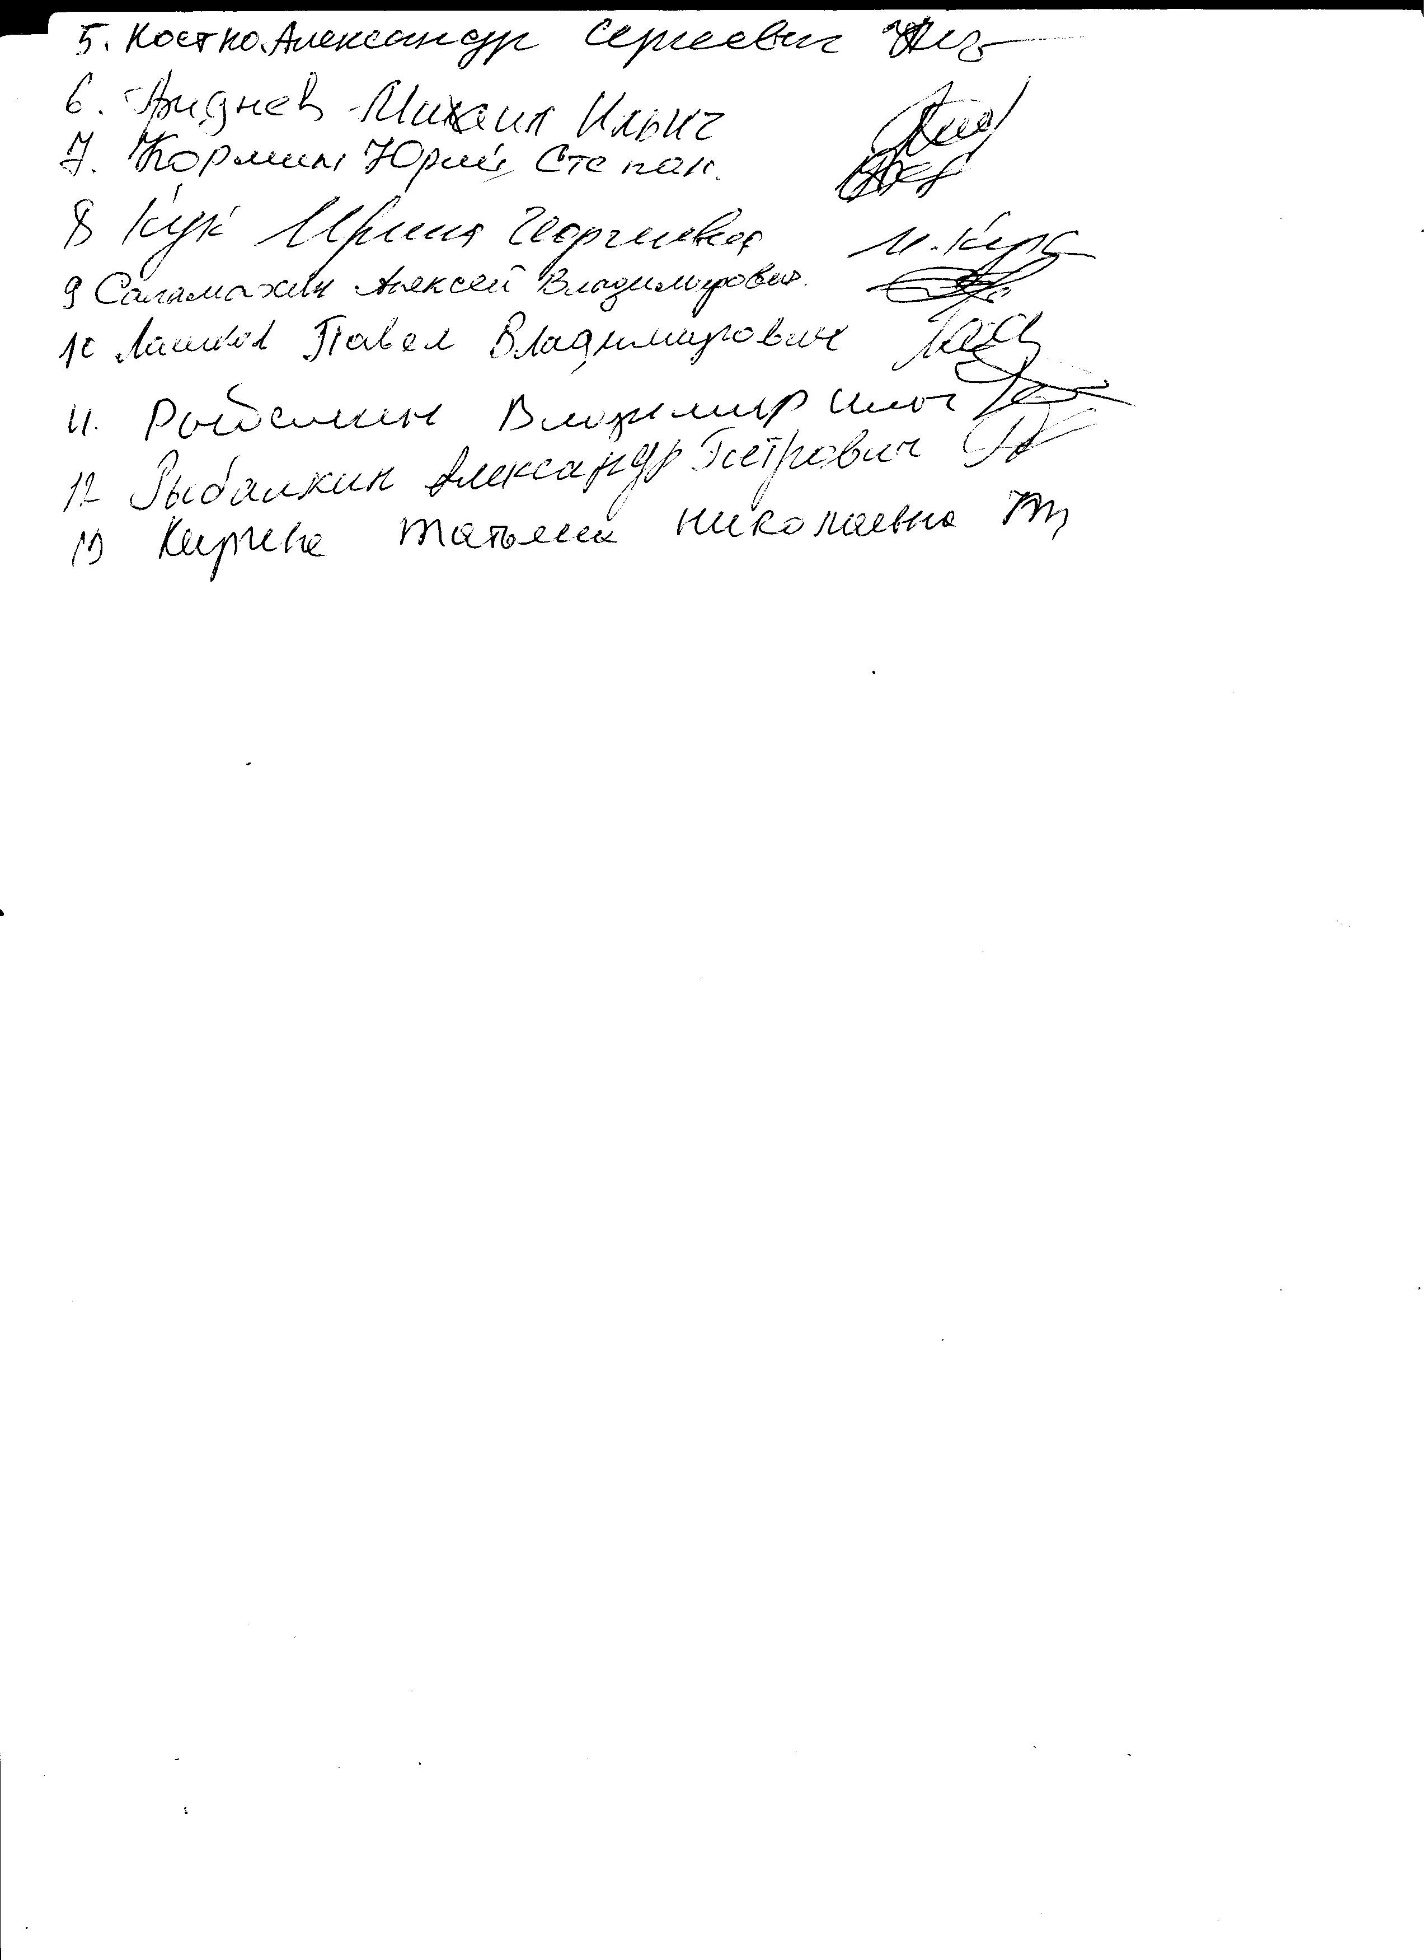 5. Костко Александр Сергеевич
6. Аиднев Михаил Ильич
7. Кормин Юрий Степан.
8 Кук Ирина Георгиевна И. Кук
9 Саламахин Алексей Владимирович.
10 Павел Владимирович
11. Владимир Ильич
12 Рыбалкин Александр Петрович
13 Татьяна Николаевна